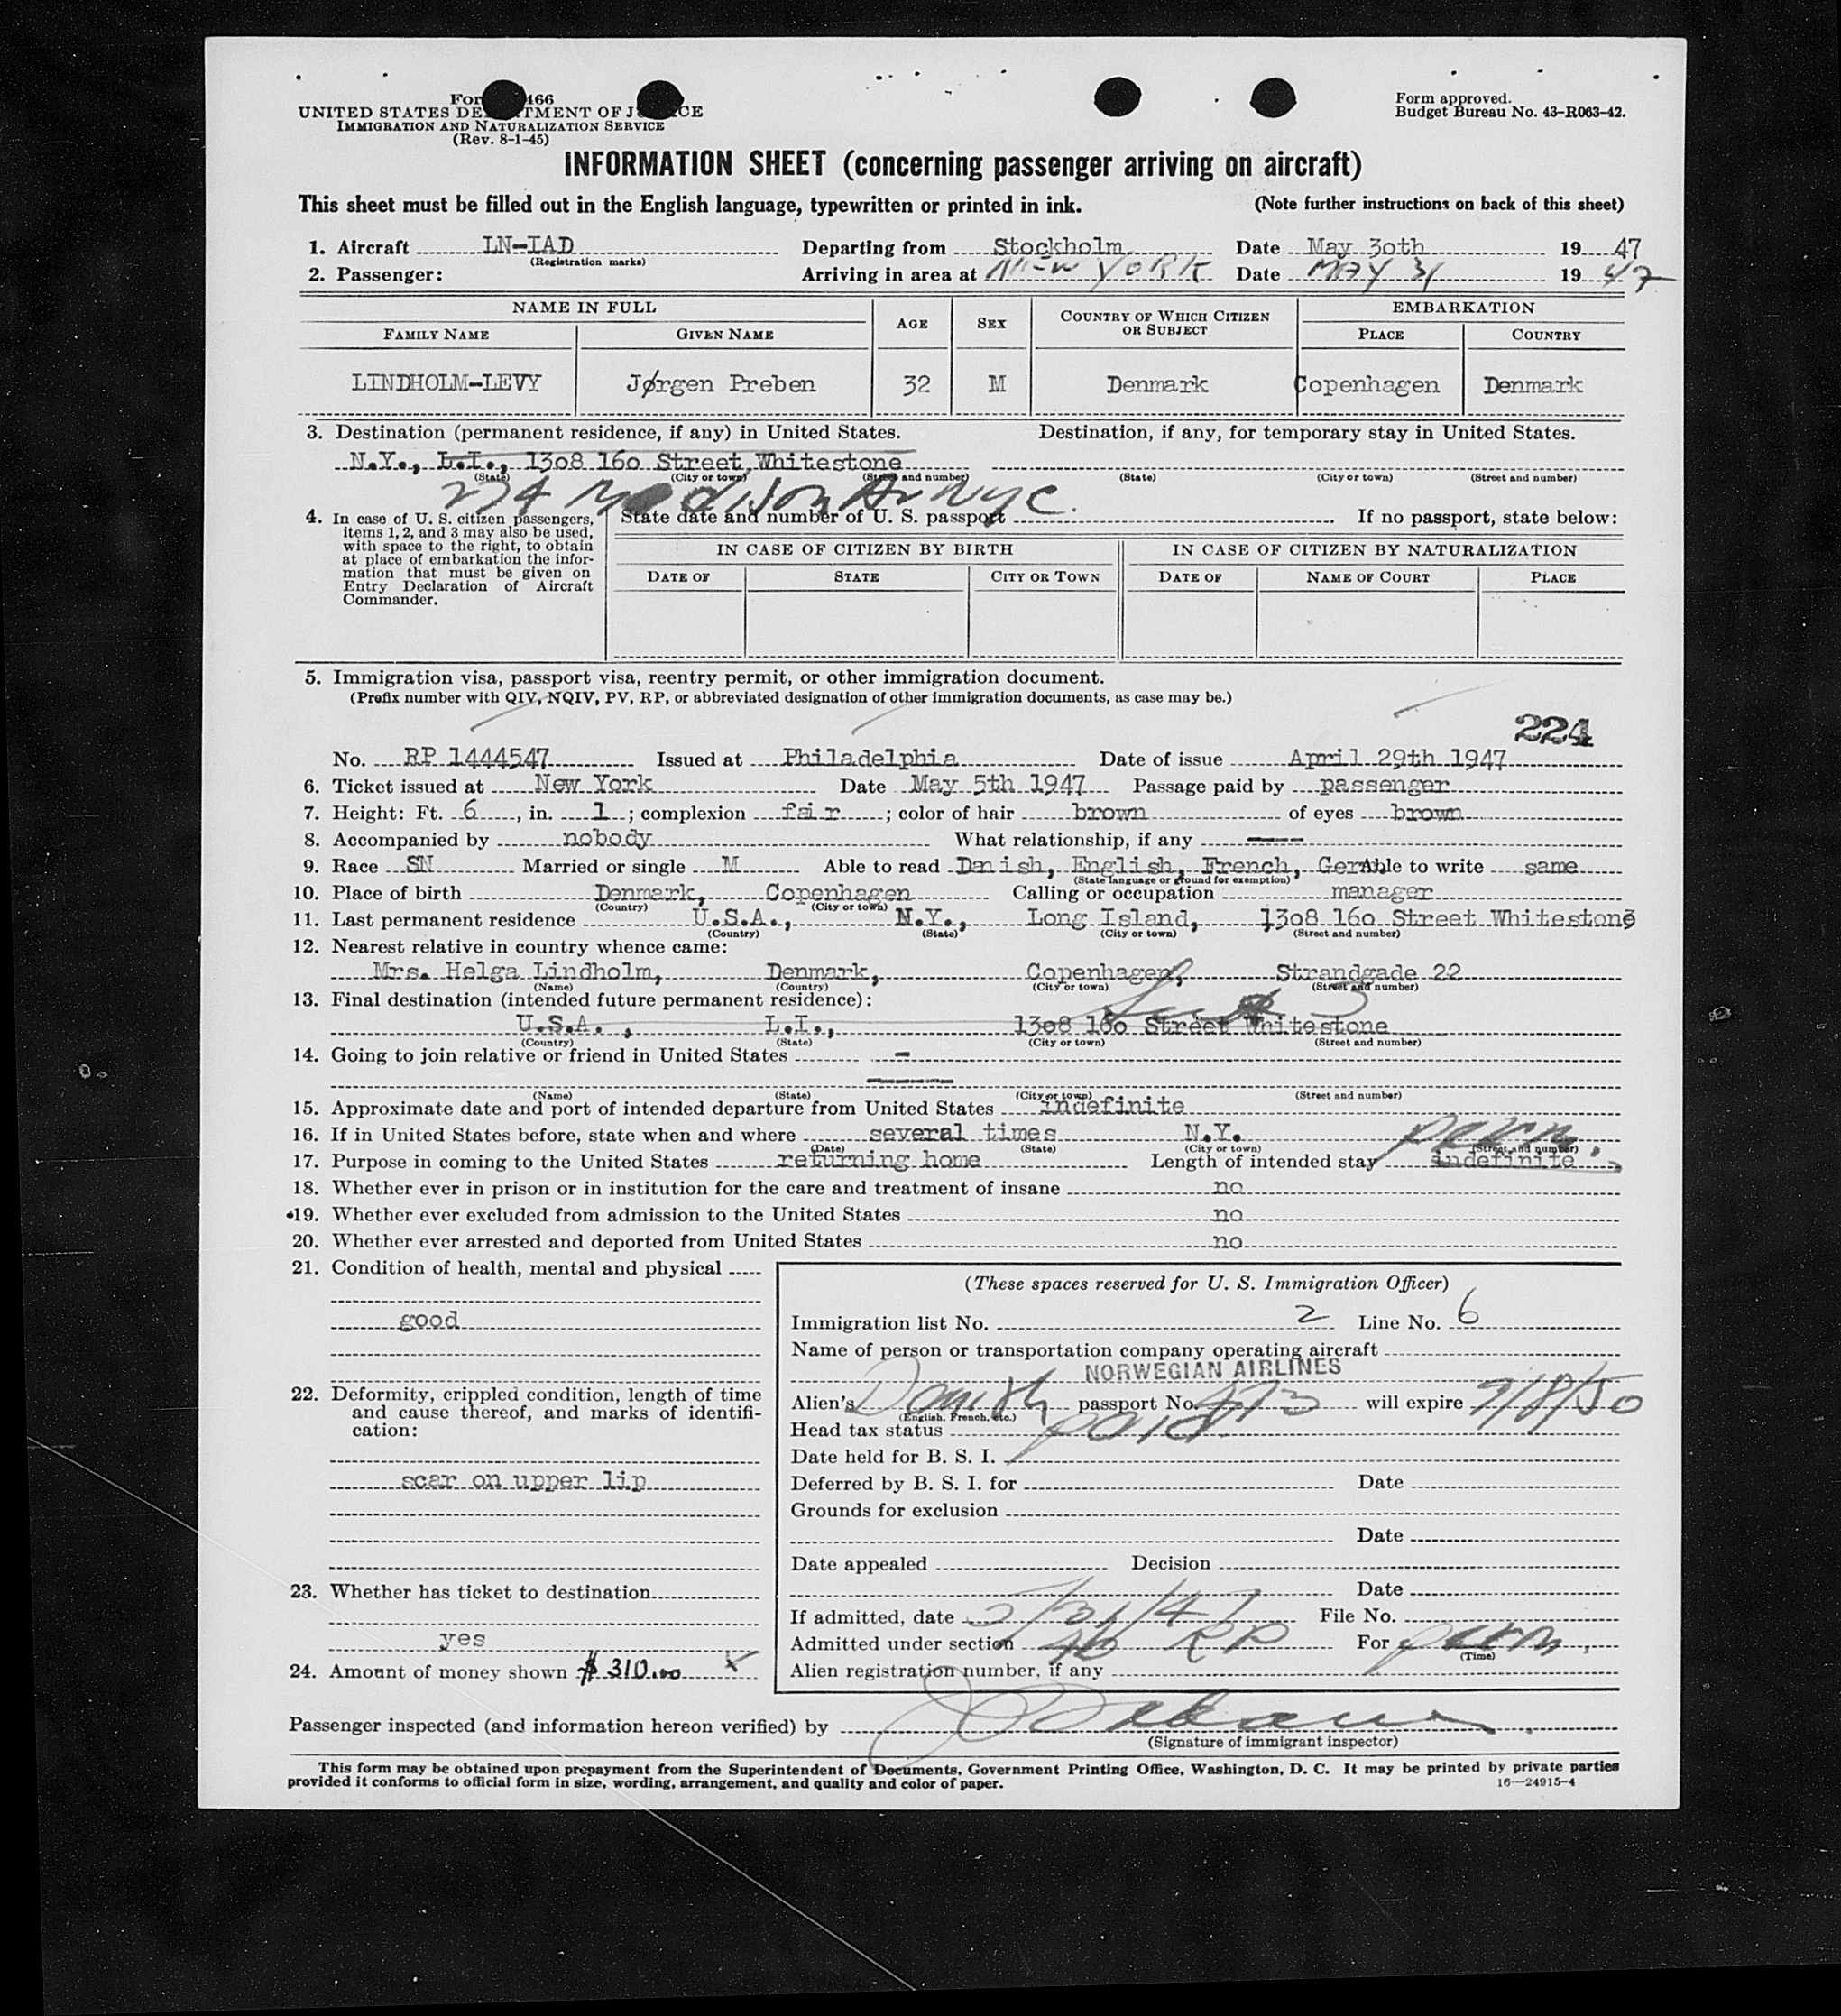 For 466
UNITED STATES DE TMENT OF J CE
IMMIGRATION AND NATURALIZATION SERVICE
(Rev. 8-1-45)
Form approved.
Budget Bureau No. 43-R063-42.
INFORMATION SHEET (concerning passenger arriving on aircraft)
This sheet must be filled out in the English language, typewritten or printed in ink. (Note further instructions on back of this sheet)
1. Aircraft LN-IAD Departing from Stockholm Date May 30th 19 47
(Registration marks)
2. Passenger: Arriving in area at NEW YORK Date MAY 31 19 47
NAME IN FULL AGE SEX COUNTRY OF WHICH CITIZEN OR SUBJECT EMBARKATION
FAMILY NAME GIVEN NAME PLACE COUNTRY
LINDHOLM-LEVY Jørgen Preben 32 M Denmark Copenhagen Denmark
3. Destination (permanent residence, if any) in United States. Destination, if any, for temporary stay in United States.
N.Y., L.I., 1308 160 Street Whitestone
(State) (City or town) (Street and number) (State) (City or town) (Street and number)
274 Madison Av NYC.
4. In case of U. S. citizen passengers, items 1, 2, and 3 may also be used, with space to the right, to obtain at place of embarkation the information that must be given on Entry Declaration of Aircraft Commander.
State date and number of U. S. passport . If no passport, state below:
IN CASE OF CITIZEN BY BIRTH IN CASE OF CITIZEN BY NATURALIZATION
DATE OF STATE CITY OR TOWN DATE OF NAME OF COURT PLACE
5. Immigration visa, passport visa, reentry permit, or other immigration document.
(Prefix number with QIV, NQIV, PV, RP, or abbreviated designation of other immigration documents, as case may be.)
224
No. RP 1444547 Issued at Philadelphia Date of issue April 29th 1947
6. Ticket issued at New York Date May 5th 1947 Passage paid by passenger
7. Height: Ft. 6, in. 1; complexion fair; color of hair brown of eyes brown
8. Accompanied by nobody What relationship, if any ----
9. Race SN Married or single M Able to read Danish, English, French, Germ Able to write same
(State language or ground for exemption)
10. Place of birth Denmark, Copenhagen Calling or occupation manager
(Country) (City or town)
11. Last permanent residence U.S.A., N.Y., Long Island, 1308 160 Street Whitestone
(Country) (State) (City or town) (Street and number)
12. Nearest relative in country whence came:
Mrs. Helga Lindholm, Denmark, Copenhagen, Strandgade 22
(Name) (Country) (City or town) (Street and number)
13. Final destination (intended future permanent residence):
U.S.A., L.I., 1308 160 Street Whitestone
(Country) (State) (City or town) (Street and number)
14. Going to join relative or friend in United States -
(Name) (State) (City or town) (Street and number)
15. Approximate date and port of intended departure from United States indefinite
16. If in United States before, state when and where several times N.Y.
(Date) (State) (City or town) (Street and number)
perm.
17. Purpose in coming to the United States returning home Length of intended stay indefinite
18. Whether ever in prison or in institution for the care and treatment of insane no
19. Whether ever excluded from admission to the United States no
20. Whether ever arrested and deported from United States no
21. Condition of health, mental and physical
good
22. Deformity, crippled condition, length of time and cause thereof, and marks of identification:
scar on upper lip
23. Whether has ticket to destination
yes
24. Amount of money shown $ 310.00 x
(These spaces reserved for U. S. Immigration Officer)
Immigration list No. 2 Line No. 6
Name of person or transportation company operating aircraft
NORWEGIAN AIRLINES
Alien's Danish passport No. 873 will expire 9/8/50
(English, French, etc.)
Head tax status paid
Date held for B. S. I.
Deferred by B. S. I. for Date
Grounds for exclusion
Date
Date appealed Decision
Date
If admitted, date 5/31/47 File No.
Admitted under section 4b RP For perm.
(Time)
Alien registration number, if any
Passenger inspected (and information hereon verified) by
(Signature of immigrant inspector)
This form may be obtained upon prepayment from the Superintendent of Documents, Government Printing Office, Washington, D. C. It may be printed by private parties
provided it conforms to official form in size, wording, arrangement, and quality and color of paper. 16—24915-4